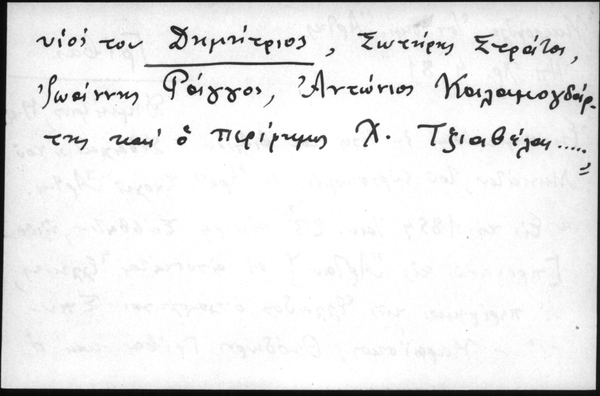 υἱός του Δημήτριος, Σωτήρης Στράτος,
Ἰωάννης Ράγγος, Ἀντώνιος Καραμογδάρ-
της καί ὁ περίφημος Χ. Τζιαβέλας.....